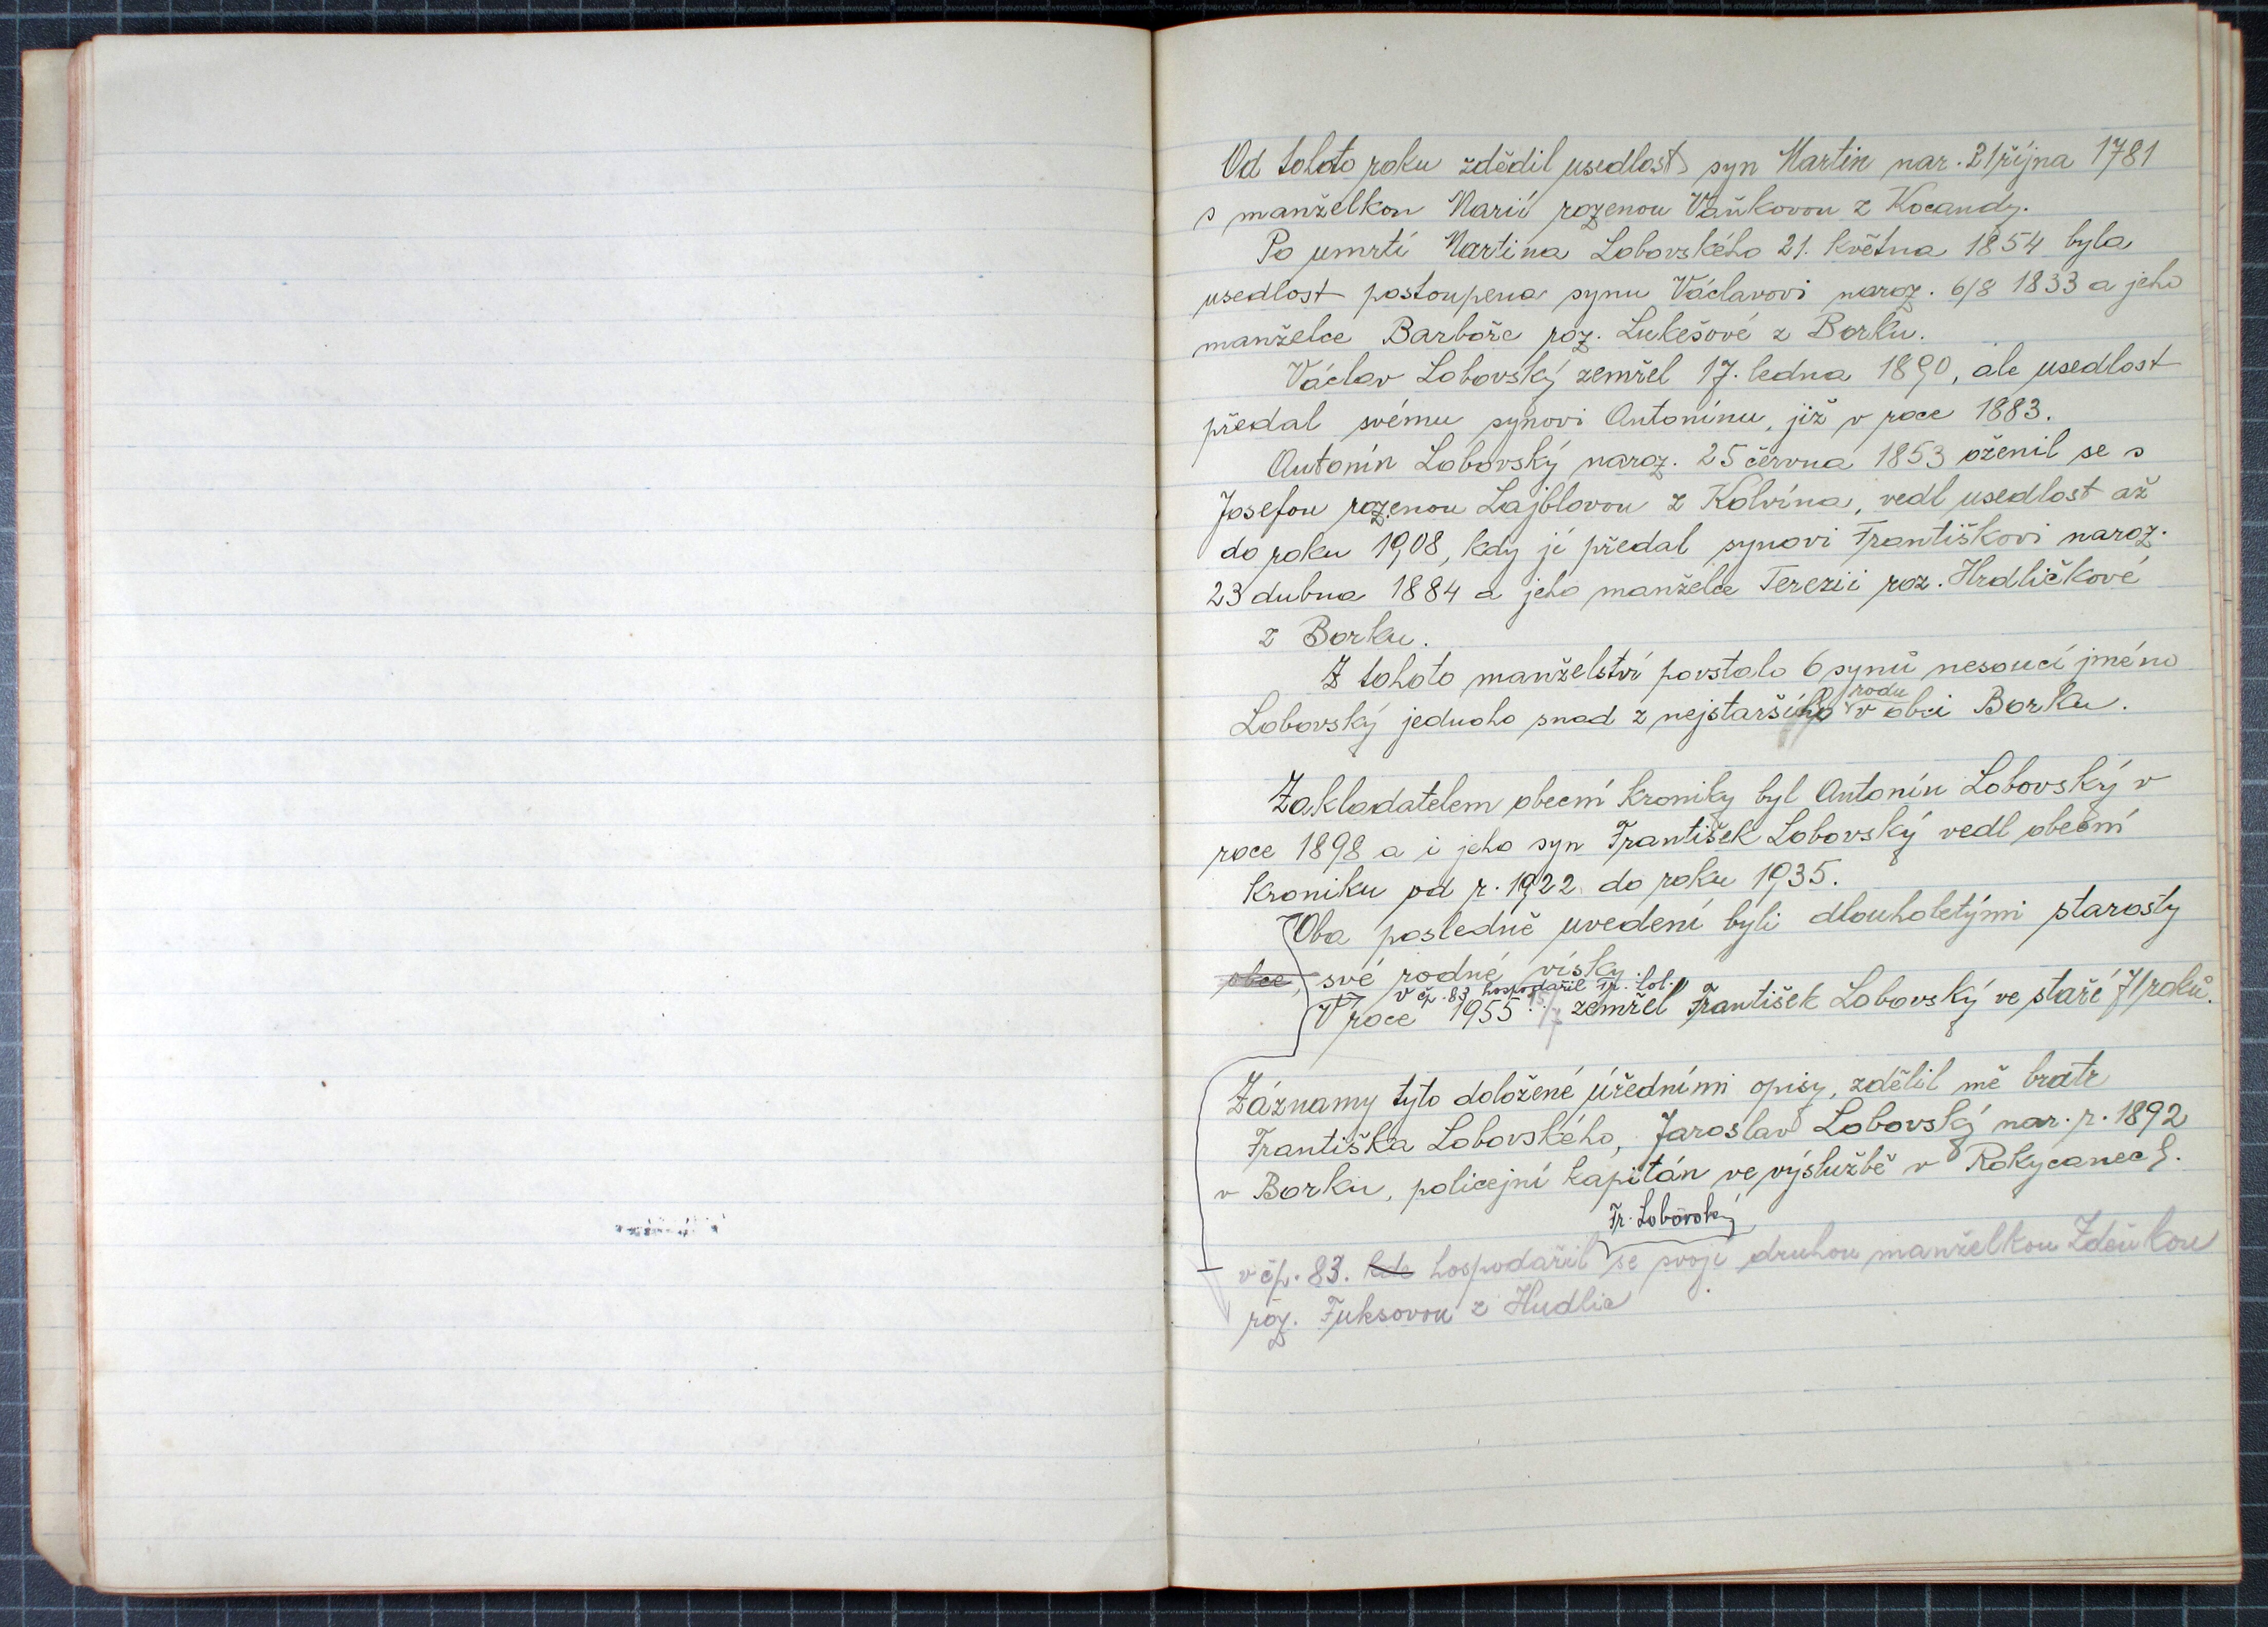 Od tohoto roku zdědil usedlost syn Martin nar. 21 října 1781
s manželkou Marií rozenou Vaňkovou z Kocandy.
Po umrtí Martina Lobovského 21. května 1854 byla
usedlost postoupena synu Václavovi naroz. 6/8 1833 a jeho
manželce Barboře roz. Lukešové z Borku.
Václav Lobovský zemřel 17. ledna 1890, ale usedlost
předal svému synovi Antonínu, již v roce 1883.
Antonín Lobovský naroz. 25 června 1853 oženil se s
Josefou rozenou Lajblovou z Kolvína, vedl usedlost až
do roku 1908, kdy jí předal synovi Františkovi naroz.
23 dubna 1884 a jeho manželce Terezii roz. Hrdličkové
z Borku.
Z tohoto manželství povstalo 6 synů nesoucí jméno
rodu
Lobovský jednoho snad z nejstaršího v obci Borku.
Zakladatelem obecní kroniky byl Antonín Lobovský v
roce 1898 a i jeho syn František Lobovský vedl obecní
kroniku od r. 1922 do roku 1935.
Oba posledně uvedení byli dlouholetými starosty
obce, své rodné vísky.
v čp. 83 hospodařil Fr. Lob.
V roce 1955 15/7 zemřel František Lobovský ve staří 71 roků.
Záznamy tyto doložené úředními opisy, zdělil mě bratr
Františka Lobovského, Jaroslav Lobovský nar. r. 1892
v Borku, policejní kapitán ve výslužbě v Rokycanech.
Fr. Lobovský
v čp. 83. kde hospodařil se svojí druhou manželkou Zdeňkou
roz. Fuksovou z Hudlic